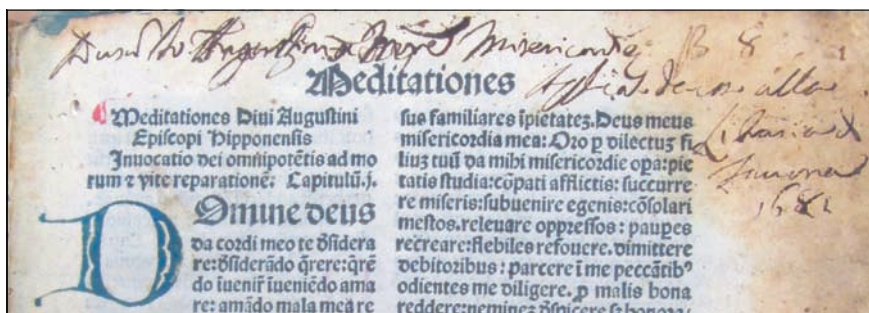 Misericordie B 8
1
Meditationes
Meditationes Diui Augustini
Episcopi Hipponensis
Inuocatio dei omnipotẽtis ad mo
rum ⁊ vite reparationẽ. Capitulũ.j.
Domine deus
da cordi meo te d̃sidera
re: d̃siderãdo q̃rere: q̃rẽ
do ĩuenir̃ ĩueniẽdo ama
re: amãdo mala mea re
sus familiares ĩpietateꝫ. Deus meus
misericordia mea: Oro ꝑ dilectuꝫ fi
liuꝫ tuũ da mihi misericordie oꝑa: pie
tatis studia: cõpati afflictis: succurre
re miseris: subuenire egenis: cõsolari
mestos. releuare oppressos: pauꝑes
recreare: flebiles refouere. dimittere
debitoribus: parcere ĩ me peccãtibꝰ
odientes me diligere. ꝓ malis bona
reddere: nemineꝫ d̃spicere sꝫ honora:
1681